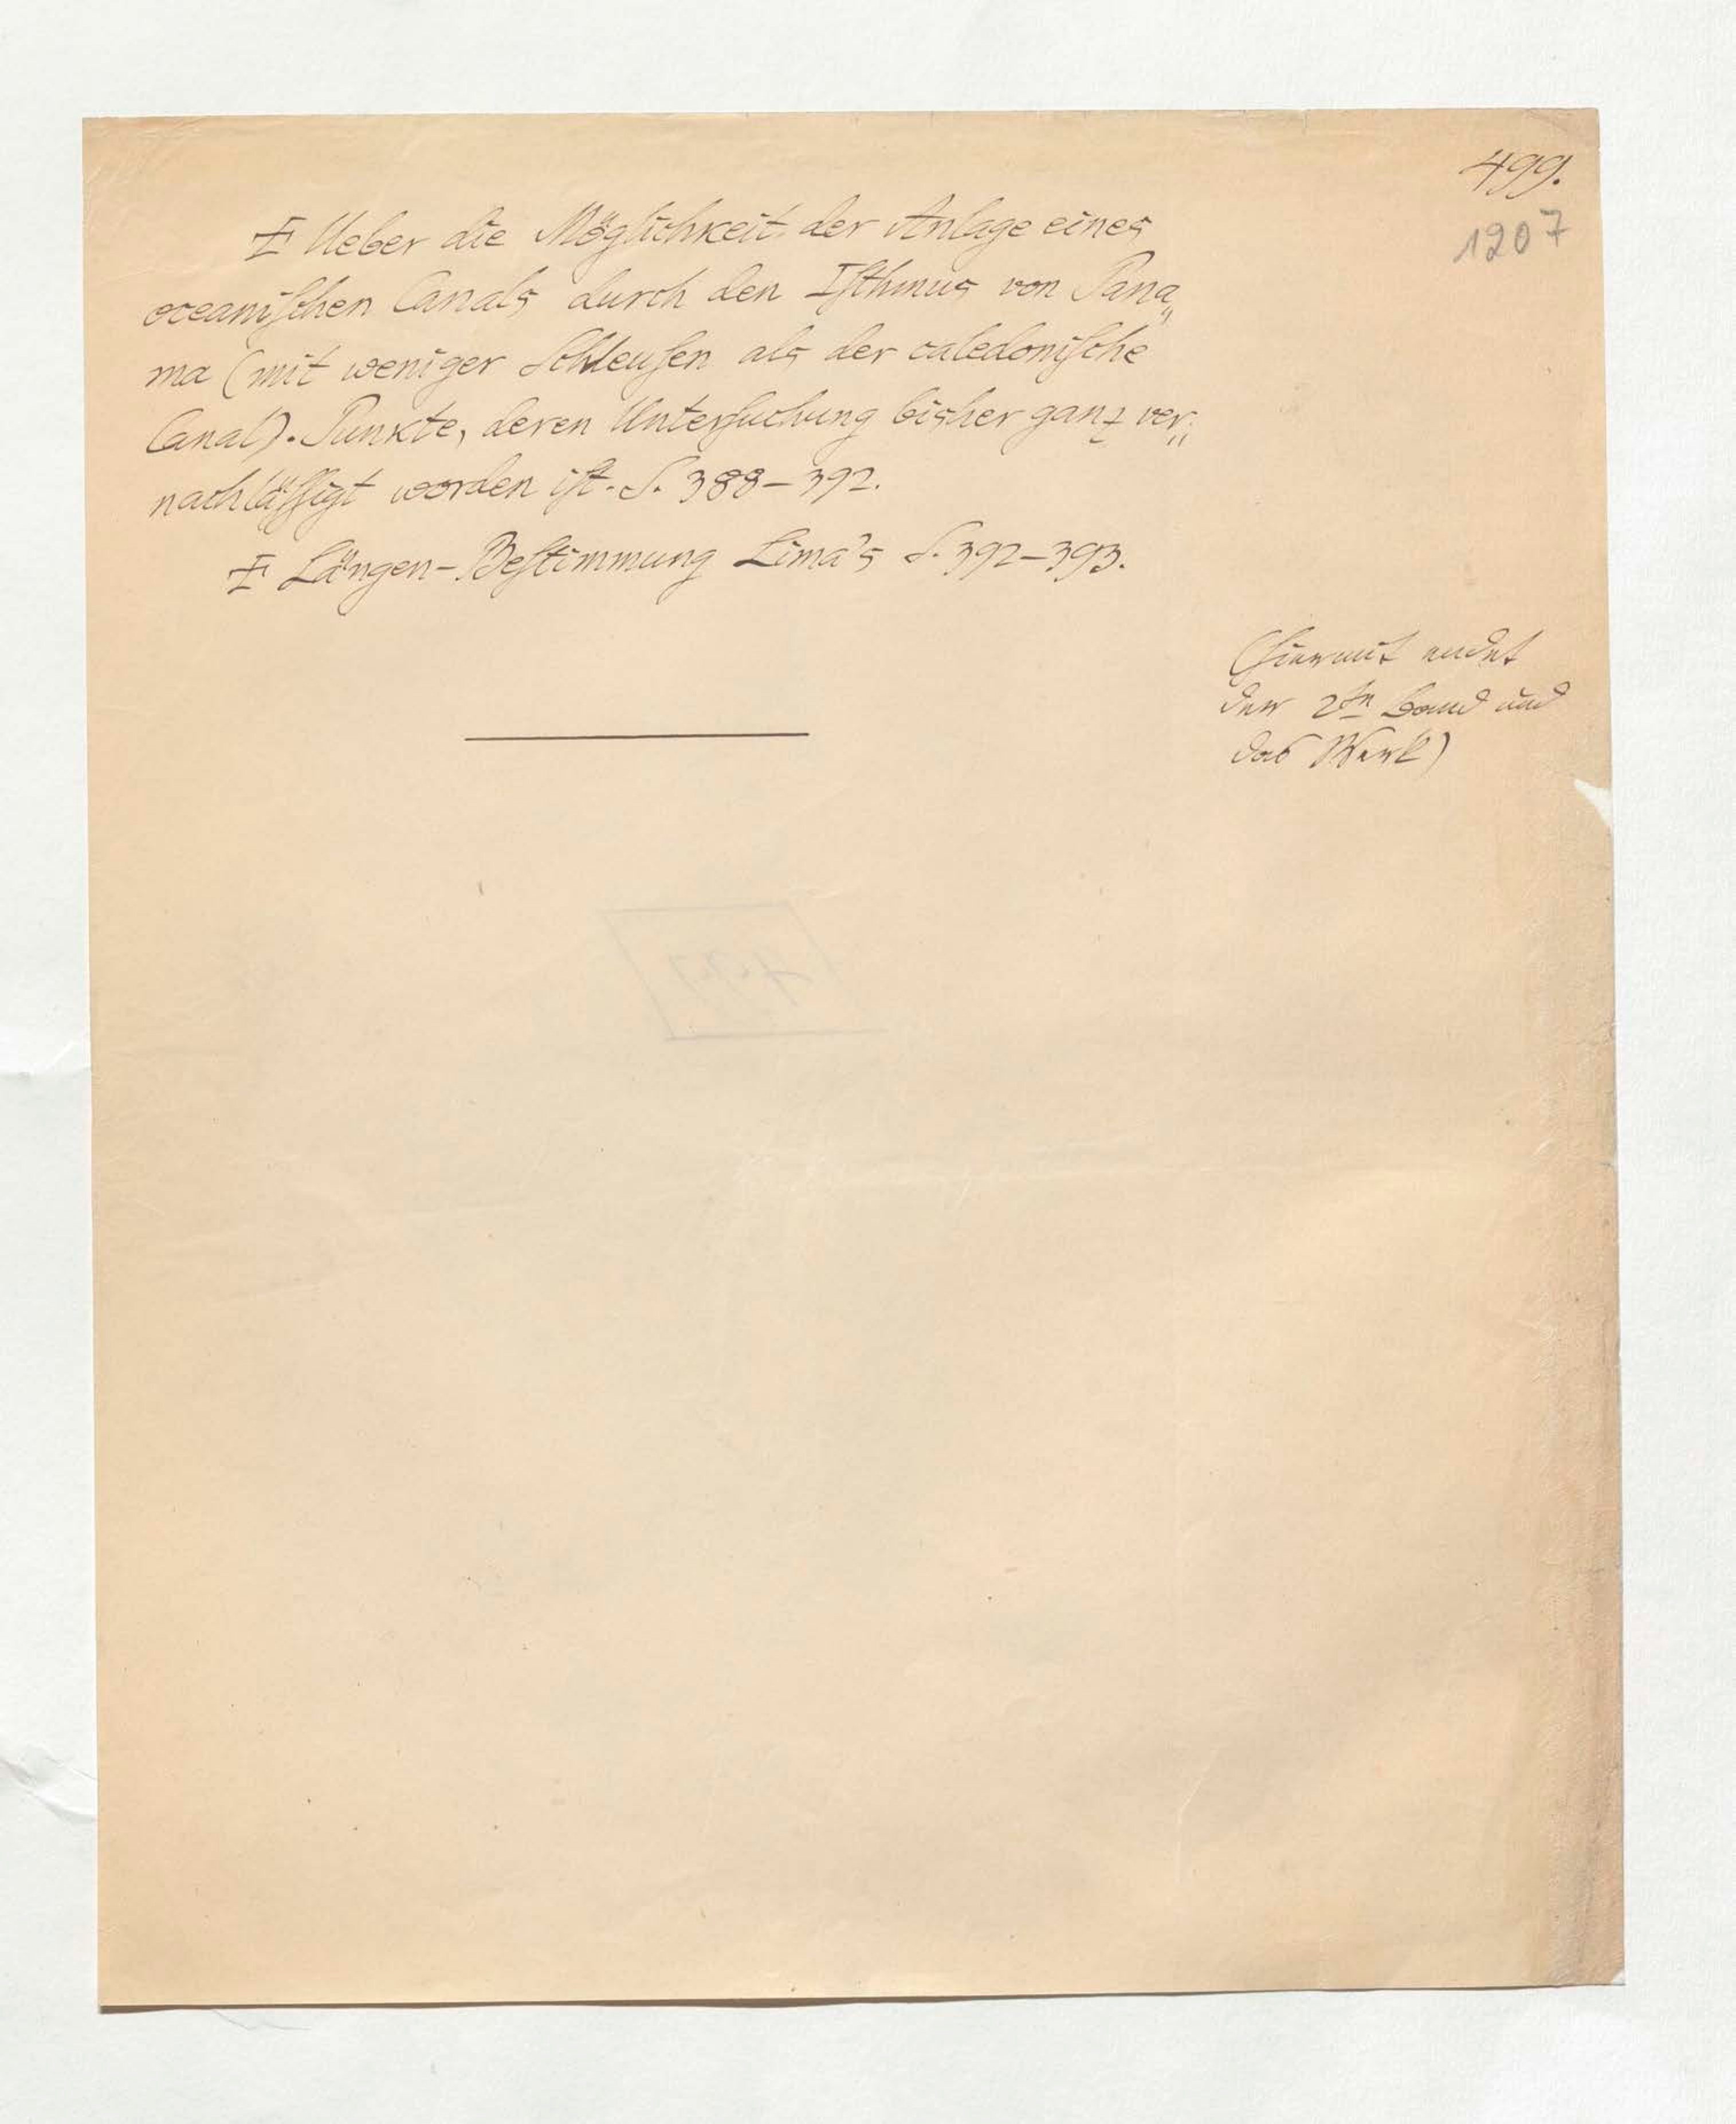 499.
1207
Ueber die Möglichkeit der Anlage eines
oceaniſchen Canals durch den Iſthmus von Pana„
ma (mit weniger Schleuſen als der caledoniſche
Canal). Punkte, deren Unterſuchung bisher ganz ver„
nachläſſigt worden iſt. S. 388–392.
Längen-Beſtimmung Lima's S. 392–393.
(Hiermit endet
der 2te Band und
das Werk)